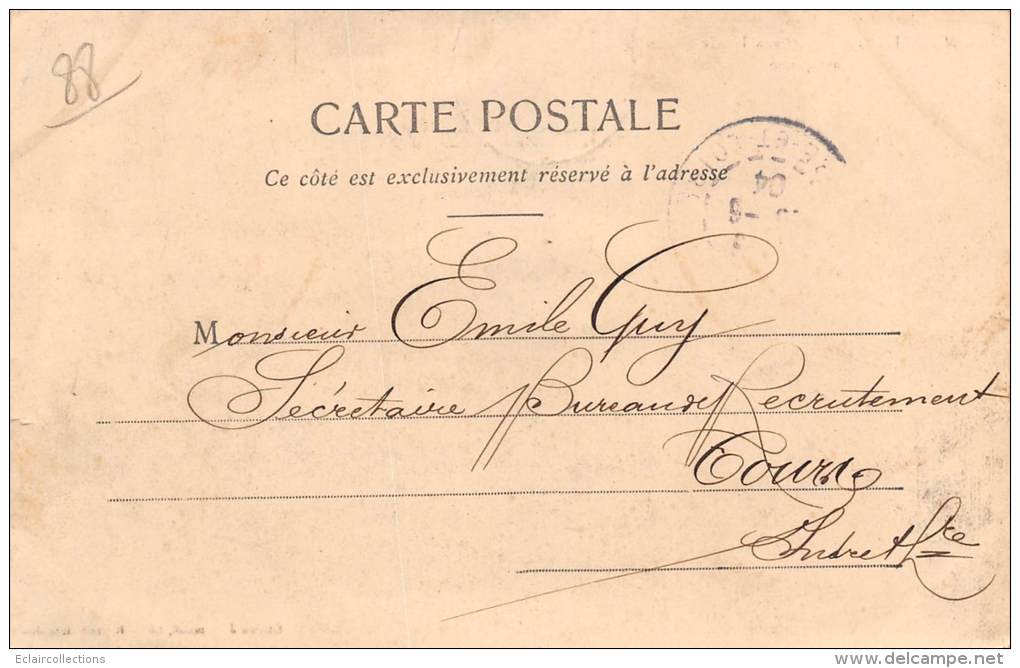 88
CARTE POSTALE
Ce côté est exclusivement réservé à l'adresse
RE-ET-LOIRE
04
Monsieur Emile Guy
Sécretaire Bureau de Recrutement
Tours
Indre et Lre
Eclaircollections
delcampe.net